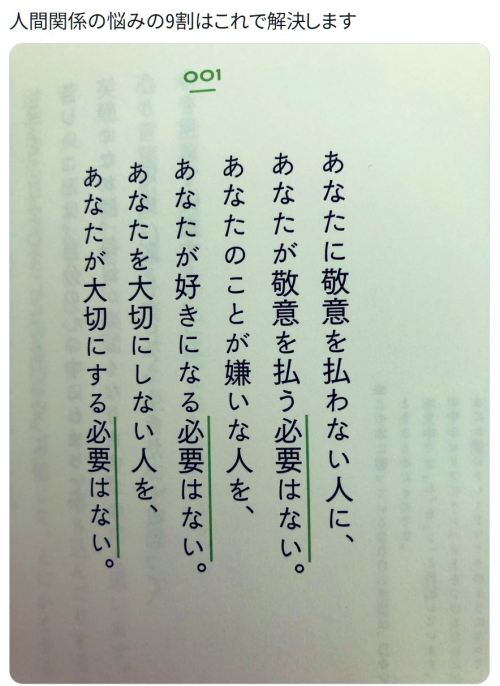 人間関係の悩みの9割はこれで解決します
001
あなたに敬意を払わない人に、
あなたが敬意を払う必要はない。
あなたのことが嫌いな人を、
あなたが好きになる必要はない。
あなたを大切にしない人を、
あなたが大切にする必要はない。